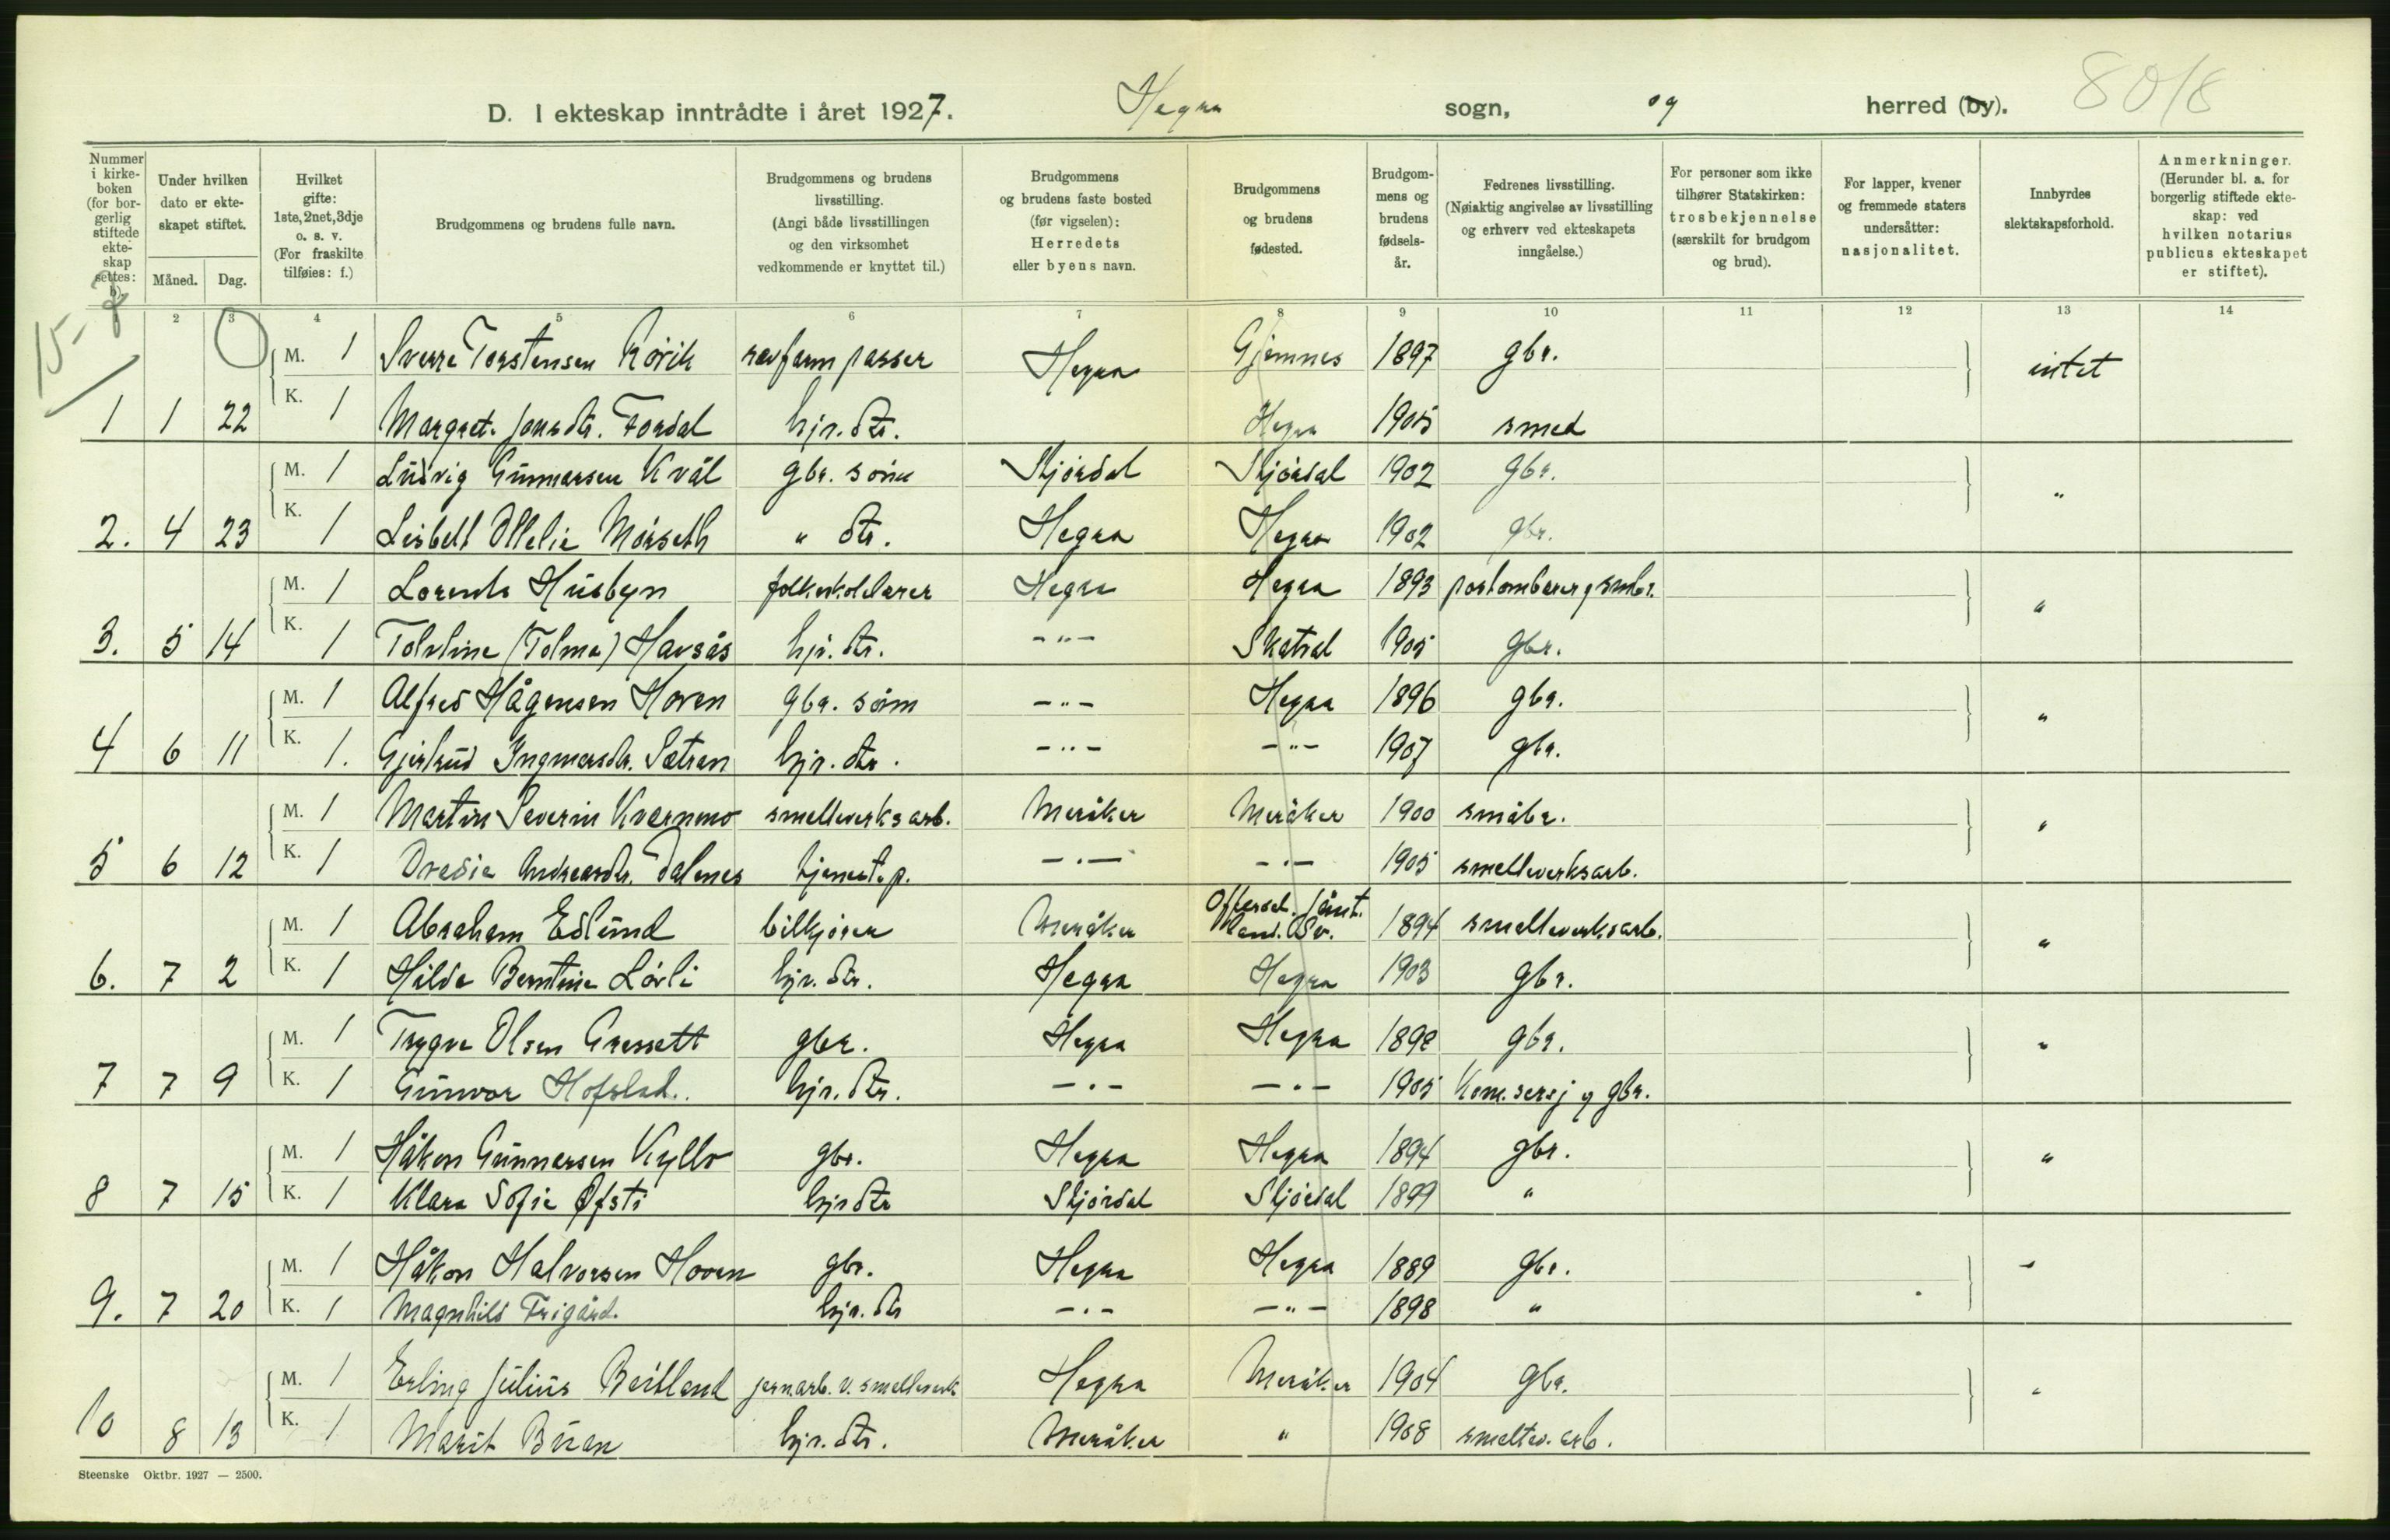 D. I ekteskap inntrådte i året 1927. Hegra sogn, og herred (by). 8018
Nummer i kirke-boken (for bor-gerlig stiftede ekte-skap settes: b).
Under hvilken dato er ekte-skapet stiftet.
Måned. Dag.
Hvilket gifte: 1ste, 2net, 3dje o. s. v. (For fraskilte tilføies: f.)
Brudgommens og brudens fulle navn.
Brudgommens og brudens livsstilling. (Angi både livsstillingen og den virksomhet vedkommende er knyttet til.)
Brudgommens og brudens faste bosted (før vigselen): Herredets eller byens navn.
Brudgommens og brudens fødested.
Brudgom-mens og brudens fødsels-år.
Fedrenes livsstilling. (Nøiaktig angivelse av livsstilling og erhverv ved ekteskapets inngåelse.)
For personer som ikke tilhører Statskirken: trosbekjennelse (særskilt for brudgom og brud).
For lapper, kvener og fremmede staters undersåtter: nasjonalitet.
Innbyrdes slektskapsforhold.
Anmerkninger. (Herunder bl. a. for borgerlig stiftede ekte-skap: ved hvilken notarius publicus ekteskapet er stiftet).
1 2 3 4 5 6 7 8 9 10 11 12 13 14
M. 1 Sverre Torstensen Rörik revfarm passer Hegra Gjemnes 1897 gbr. intet
1 1 22 K. 1 Margret Jonsdtr. Fordal hjv. dtr. Hegra 1905 smed
M. 1 Ludvig Gunnarsen Kvål gbr. sönn Stjördal Stjördal 1902 gbr. "
2. 4 23 K. 1 Lisbett Ottelie Mörseth " dtr. Hegra Hegra 1902 gbr.
M. 1 Lorents Husbyn folkeskolelærer Hegra Hegra 1893 postombærer g småbr. "
3. 5 14 K. 1 Toline (Tolma) Havsås hjv. dtr. -"- Skatval 1905 gbr.
M. 1 Alfred Hågensen Hoven gbr. sönn -"- Hegra 1896 gbr. "
4 6 11 K. 1. Gjertrud Ingmarsdtr. Sætran hjv. dtr. -"- -"- 1907 gbr.
M. 1 Martin Severin Kvernmo smelteverksarb. Meråker Meråker 1900 småbr. "
5 6 12 K. 1 Andreasdtr. Dalenes tjenestep. -"- -"- 1905 smelteverksarb.
M. 1 Abraham Edlund bilkjører Meråker Offerdal. Jämt. land. Sv. 1894 smelteverksarb. "
6. 7 2 K. 1 Hilda Berntine Lövli hjv. dtr. Hegra Hegra 1903 gbr.
M. 1 Trygve Olsen Gresset gbr. Hegra Hegra 1898 gbr. "
7 7 9 K. 1 Gunvor Hofstad. hjv. dtr. -"- -"- 1905 gbr.
M. 1 Håkon Gunnarsen Kyllo gbr. Hegra Hegra 1894 gbr. "
8 7 15 K. 1 Klara Sofie Øfsti hjv dtr Stjördal Stjördal 1899 "
M. 1 Håkon Halvorsen Hoven gbr. Hegra Hegra 1889 gbr. "
9. 7 20 K. 1 Magnhild Trigård. hjv. dtr -"- -"- 1898 "
M. 1 Erling Julius Beitland jernarb. v. smelteverk Hegra Meråker 1904 gbr. "
10 8 13 K. 1 Marit Buan hjv. dtr. Meråker " 1908 smeltev. arb.
Steenske Oktbr. 1927 — 2500.